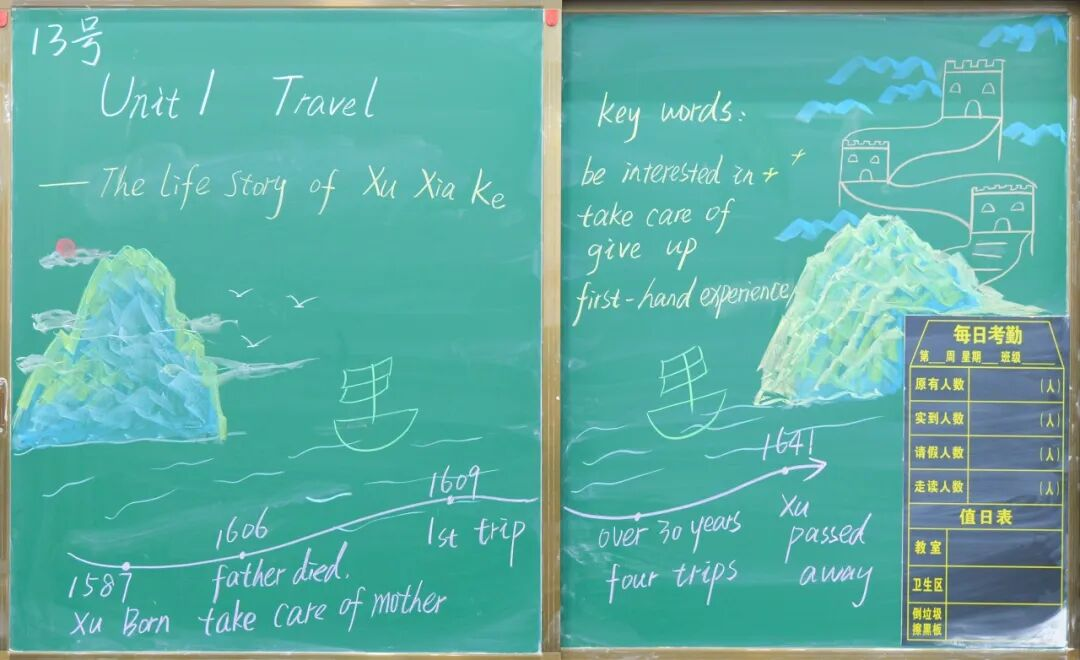 13号
Unit 1 Travel
— The life story of Xu Xia ke
1587
Xu Born
1606
father died.
take care of mother
1609
1st trip
key words:
be interested in
take care of
give up
first-hand experience
over 30 years
four trips
1641
Xu
passed
away
每日考勤
第__周 星期__班级__
原有人数 (人)
实到人数 (人)
请假人数 (人)
走读人数 (人)
值日表
教室
卫生区
倒垃圾
擦黑板